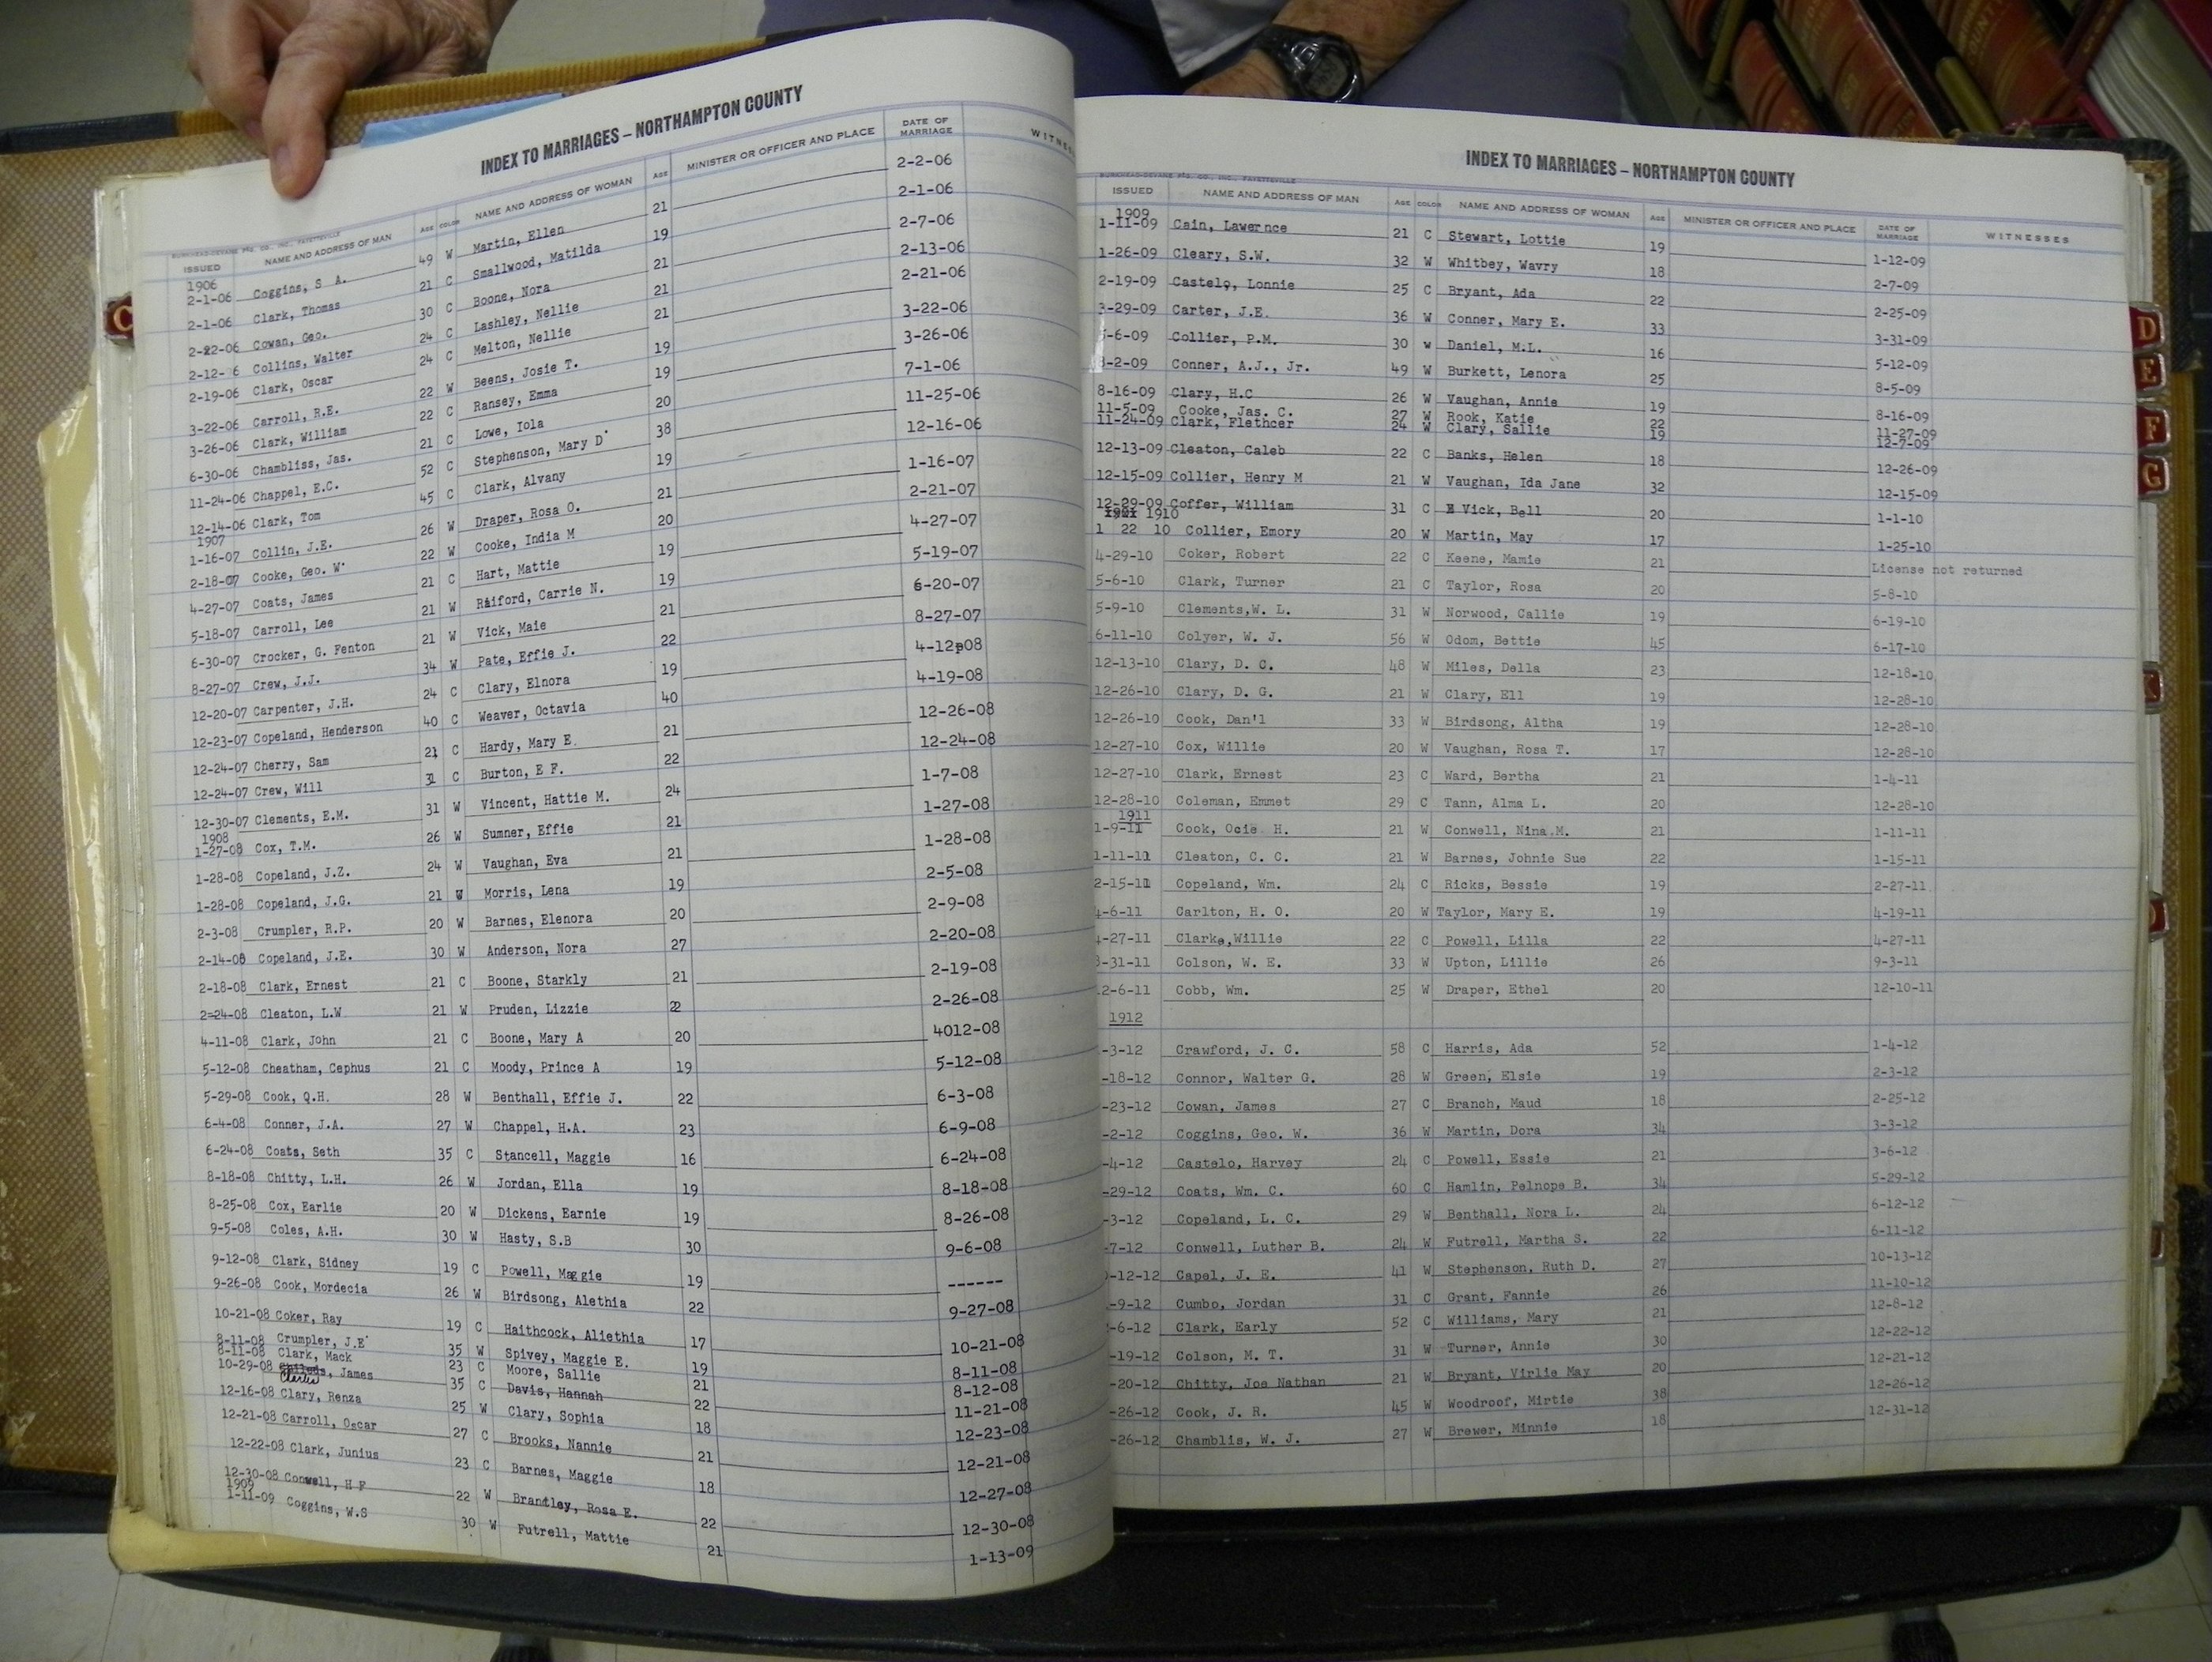 INDEX TO MARRIAGES – NORTHAMPTON COUNTY
BURKHEAD-DEVANE PTG. CO., INC., FAYETTEVILLE
ISSUED NAME AND ADDRESS OF MAN AGE COLOR NAME AND ADDRESS OF WOMAN AGE MINISTER OR OFFICER AND PLACE DATE OF MARRIAGE
1906
2-1-06 Coggins, S A. 49 W Martin, Ellen 21 2-2-06
2-1-06 Clark, Thomas 21 C Smallwood, Matilda 19 2-1-06
2-22-06 Cowan, Geo. 30 C Boone, Nora 21 2-7-06
2-12- 6 Collins, Walter 24 C Lashley, Nellie 21 2-13-06
2-19-06 Clark, Oscar 24 C Melton, Nellie 21 2-21-06
3-22-06 Carroll, R.E. 22 W Beens, Josie T. 19 3-22-06
3-26-06 Clark, William 22 C Ransey, Emma 19 3-26-06
6-30-06 Chambliss, Jas. 21 C Lowe, Iola 20 7-1-06
11-24-06 Chappel, E.C. 52 C Stephenson, Mary D 38 11-25-06
12-14-06 Clark, Tom 45 C Clark, Alvany 19 12-16-06
1907
1-16-07 Collin, J.E. 26 W Draper, Rosa O. 21 1-16-07
2-18-07 Cooke, Geo. W 22 W Cooke, India M 20 2-21-07
4-27-07 Coats, James 21 C Hart, Mattie 19 4-27-07
5-18-07 Carroll, Lee 21 W Raiford, Carrie N. 19 5-19-07
6-30-07 Crocker, G. Fenton 21 W Vick, Maie 21 6-20-07
8-27-07 Crew, J.J. 34 W Pate, Effie J. 22 8-27-07
12-20-07 Carpenter, J.H. 24 C Clary, Elnora 19 4-12p08
12-23-07 Copeland, Henderson 40 C Weaver, Octavia 40 4-19-08
12-24-07 Cherry, Sam 21 C Hardy, Mary E. 21 12-26-08
12-24-07 Crew, Will 31 C Burton, E F. 22 12-24-08
12-30-07 Clements, E.M. 31 W Vincent, Hattie M. 24 1-7-08
1908
1-27-08 Cox, T.M. 26 W Sumner, Effie 21 1-27-08
1-28-08 Copeland, J.Z. 24 W Vaughan, Eva 21 1-28-08
1-28-08 Copeland, J.G. 21 W Morris, Lena 19 2-5-08
2-3-08 Crumpler, R.P. 20 W Barnes, Elenora 20 2-9-08
2-14-08 Copeland, J.E. 30 W Anderson, Nora 27 2-20-08
2-18-08 Clark, Ernest 21 C Boone, Starkly 21 2-19-08
2-24-08 Cleaton, L.W 21 W Pruden, Lizzie 22 2-26-08
4-11-08 Clark, John 21 C Boone, Mary A 20 4012-08
5-12-08 Cheatham, Cephus 21 C Moody, Prince A 19 5-12-08
5-29-08 Cook, Q.H. 28 W Benthall, Effie J. 22 6-3-08
6-4-08 Conner, J.A. 27 W Chappel, H.A. 23 6-9-08
6-24-08 Coats, Seth 35 C Stancell, Maggie 16 6-24-08
8-18-08 Chitty, L.H. 26 W Jordan, Ella 19 8-18-08
8-25-08 Cox, Earlie 20 W Dickens, Earnie 19 8-26-08
9-5-08 Coles, A.H. 30 W Hasty, S.B 30 9-6-08
9-12-08 Clark, Sidney 19 C Powell, Maggie 19 ------
9-26-08 Cook, Mordecia 26 W Birdsong, Alethia 22 9-27-08
10-21-08 Coker, Ray 19 C Haithcock, Aliethia 17 10-21-08
8-11-08 Crumpler, J.E 35 W Spivey, Maggie E. 19 8-11-08
8-11-08 Clark, Mack 23 C Moore, Sallie 21 8-12-08
10-29-08 , James 35 C Davis, Hannah 22 11-21-08
Clark
12-16-08 Clary, Renza 25 W Clary, Sophia 18 12-23-08
12-21-08 Carroll, Oscar 27 C Brooks, Nannie 21 12-21-08
12-22-08 Clark, Junius 23 C Barnes, Maggie 18 12-27-08
12-30-08 Conwell, H F 22 W Brantley, Rosa E. 22 12-30-08
1909
1-11-09 Coggins, W.S 30 W Futrell, Mattie 21 1-13-09
C
INDEX TO MARRIAGES – NORTHAMPTON COUNTY
BURKHEAD-DEVANE PTG. CO., INC., FAYETTEVILLE
ISSUED NAME AND ADDRESS OF MAN AGE COLOR NAME AND ADDRESS OF WOMAN AGE MINISTER OR OFFICER AND PLACE DATE OF MARRIAGE WITNESSES
1909
1-11-09 Cain, Lawernce 21 C Stewart, Lottie 19 1-12-09
1-26-09 Cleary, S.W. 32 W Whitbey, Wavry 18 2-7-09
2-19-09 Castelo, Lonnie 25 C Bryant, Ada 22 2-25-09
3-29-09 Carter, J.E. 36 W Conner, Mary E. 33 3-31-09
-6-09 Collier, P.M. 30 w Daniel, M.L. 16 5-12-09
8-2-09 Conner, A.J., Jr. 49 W Burkett, Lenora 25 8-5-09
8-16-09 Clary, H.C 26 W Vaughan, Annie 19 8-16-09
11-5-09 Cooke, Jas. C. 27 W Rook, Katie 22 11-27-09
11-24-09 Clark, Flethcer 24 W Clary, Sallie 19 12-7-09
12-13-09 Cleaton, Caleb 22 C Banks, Helen 18 12-26-09
12-15-09 Collier, Henry M 21 W Vaughan, Ida Jane 32 12-15-09
12-29-09 Coffer, William 31 C Vick, Bell 20 1-1-10
1910
1 22 10 Collier, Emory 20 W Martin, May 17 1-25-10
4-29-10 Coker, Robert 22 C Keene, Mamie 21 License not returned
5-6-10 Clark, Turner 21 C Taylor, Rosa 20 5-8-10
5-9-10 Clements,W. L. 31 W Norwood, Callie 19 6-19-10
6-11-10 Colyer, W. J. 56 W Odom, Bettie 45 6-17-10
12-13-10 Clary, D. C. 48 W Miles, Della 23 12-18-10
12-26-10 Clary, D. G. 21 W Clary, Ell 19 12-28-10
12-26-10 Cook, Dan'l 33 W Birdsong, Altha 19 12-28-10
12-27-10 Cox, Willie 20 W Vaughan, Rosa T. 17 12-28-10
12-27-10 Clark, Ernest 23 C Ward, Bertha 21 1-4-11
12-28-10 Coleman, Emmet 29 C Tann, Alma L. 20 12-28-10
1911
1-9-11 Cook, Ocie H. 21 W Conwell, Nina M. 21 1-11-11
1-11-11 Cleaton, C. C. 21 W Barnes, Johnie Sue 22 1-15-11
2-15-11 Copeland, Wm. 24 C Ricks, Bessie 19 2-27-11
4-6-11 Carlton, H. O. 20 W Taylor, Mary E. 19 4-19-11
4-27-11 Clarke,Willie 22 C Powell, Lilla 22 4-27-11
-31-11 Colson, W. E. 33 W Upton, Lillie 26 9-3-11
2-6-11 Cobb, Wm. 25 W Draper, Ethel 20 12-10-11
1912
-3-12 Crawford, J. C. 58 C Harris, Ada 52 1-4-12
-18-12 Connor, Walter G. 28 W Green, Elsie 19 2-3-12
-23-12 Cowan, James 27 C Branch, Maud 18 2-25-12
-2-12 Coggins, Geo. W. 36 W Martin, Dora 34 3-3-12
-4-12 Castelo, Harvey 24 C Powell, Essie 21 3-6-12
-29-12 Coats, Wm. C. 60 C Hamlin, Pelnope B. 34 5-29-12
-3-12 Copeland, L. C. 29 W Benthall, Nora L. 24 6-12-12
-7-12 Conwell, Luther B. 24 W Futrell, Martha S. 22 6-11-12
-12-12 Capel, J. E. 41 W Stephenson, Ruth D. 27 10-13-12
-9-12 Cumbo, Jordan 31 C Grant, Fannie 26 11-10-12
-6-12 Clark, Early 52 C Williams, Mary 21 12-8-12
-19-12 Colson, M. T. 31 W Turner, Annie 30 12-22-12
-20-12 Chitty, Joe Nathan 21 W Bryant, Virlie May 20 12-21-12
-26-12 Cook, J. R. 45 W Woodroof, Mirtie 38 12-26-12
-26-12 Chamblis, W. J. 27 W Brewer, Minnie 18 12-31-12
D
E
F
G
K